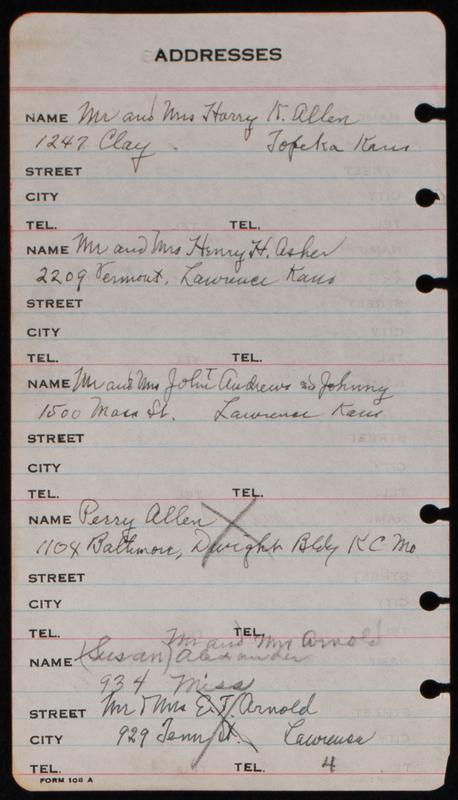 ADDRESSES
NAME Mr and Mrs Harry K. Allen
1247 Clay . Topeka Kans
STREET
CITY
TEL. TEL.
NAME Mr and Mrs Henry H. Asher
2209 Vermont, Lawrence Kans
STREET
CITY
TEL. TEL.
NAME Mr and Mrs John T Andrews and Johnny
1500 Mass St. Lawrence Kans
STREET
CITY
TEL. TEL.
NAME Perry Allen
1104 Baltimore, Dwight Bldg K C Mo
STREET
CITY
TEL. TEL.
Mr and Mrs Arnold
NAME (Susan) Alexander
934 Miss
STREET Mr & Mrs E. J. Arnold
CITY 929 Tenn St. Lawrence
TEL. TEL. 4
FORM 106 A